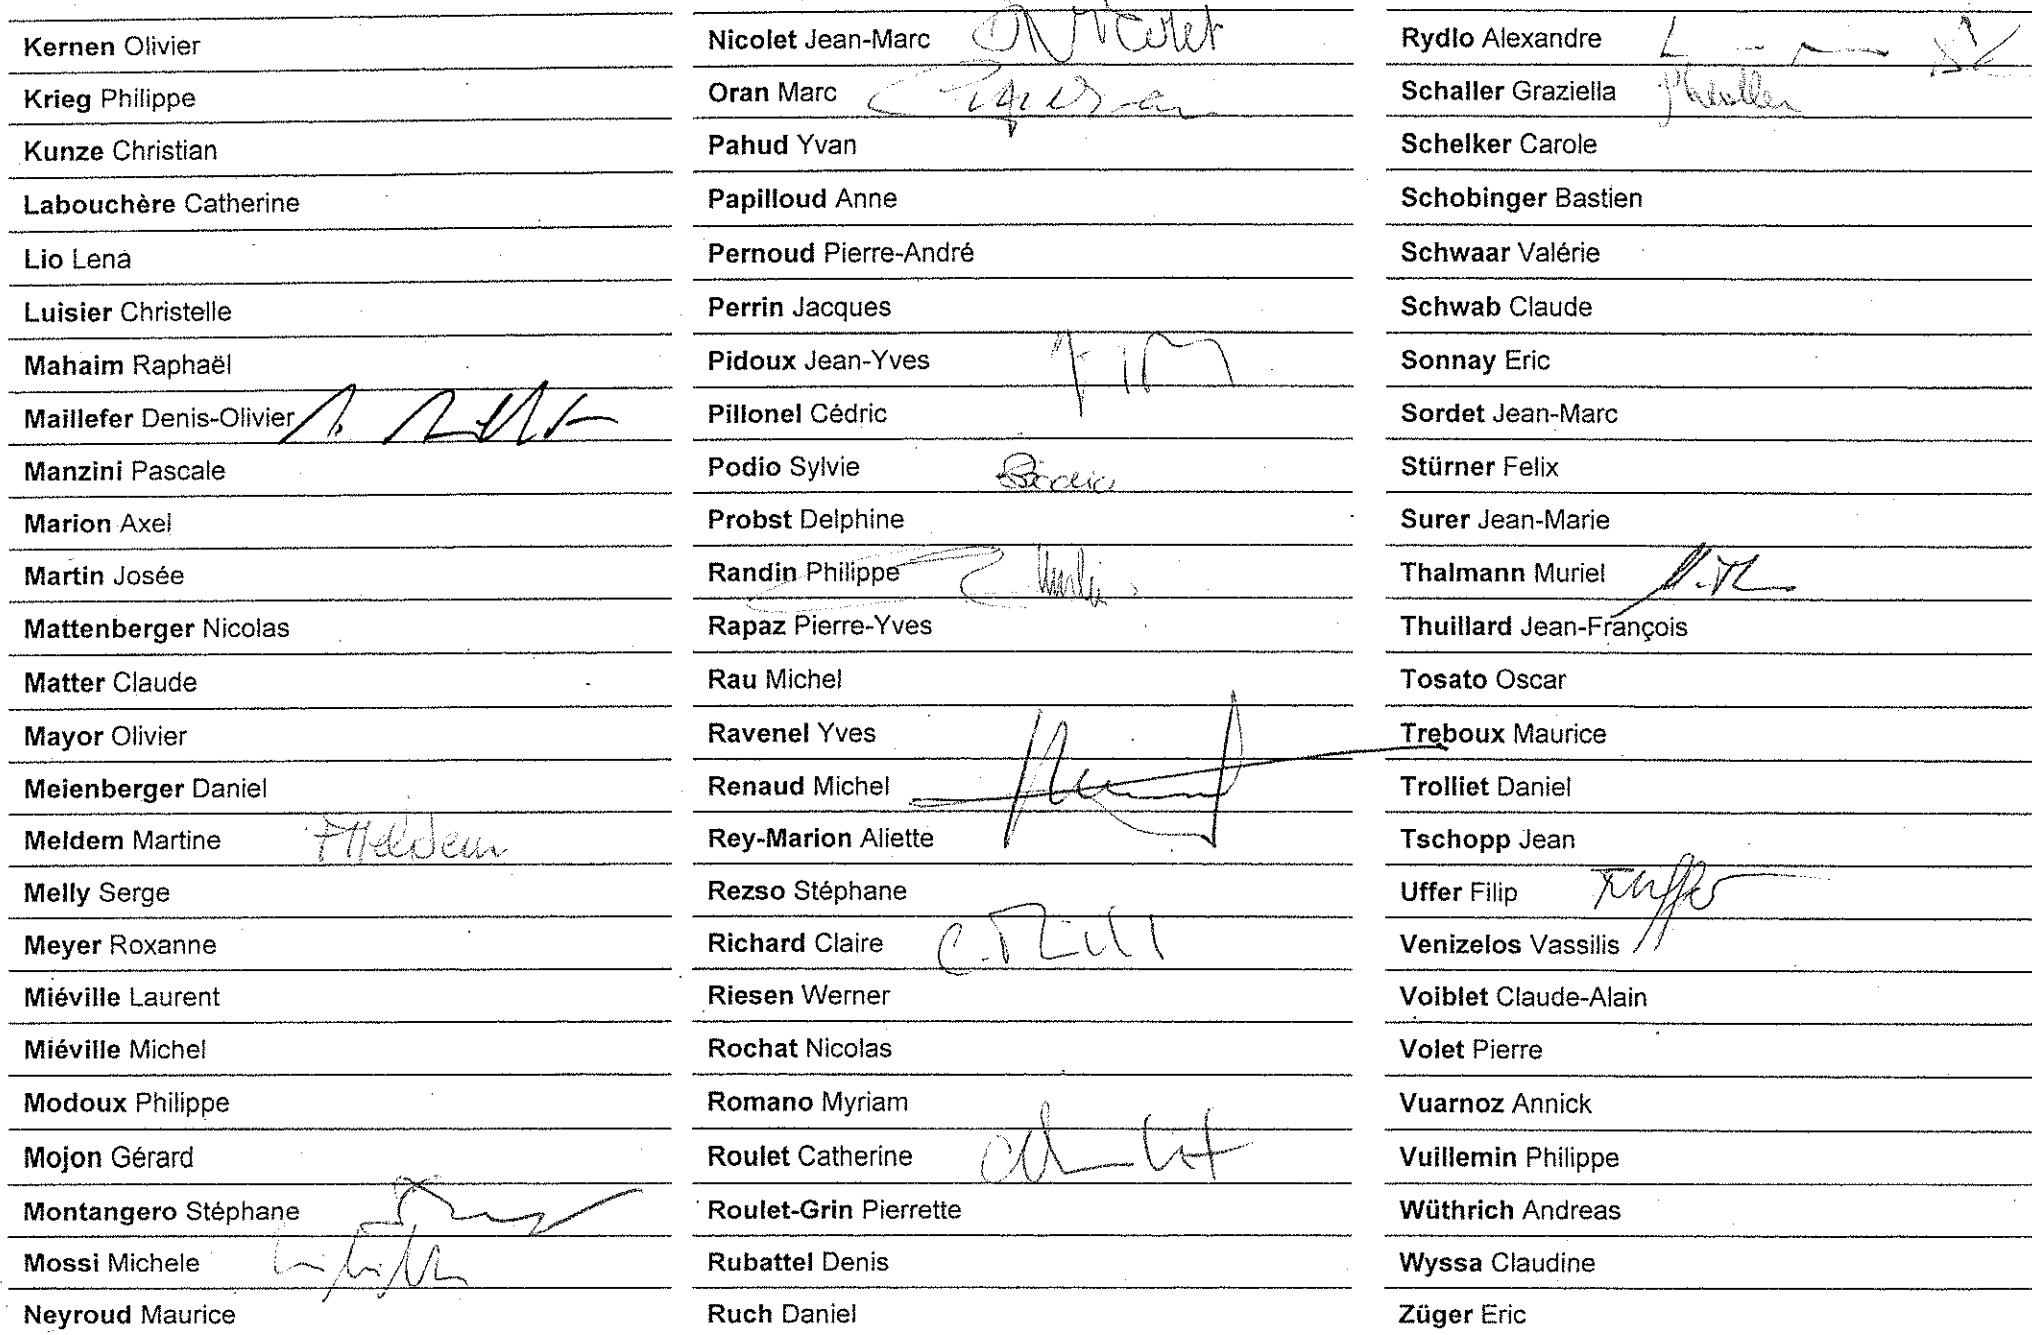 Kernen Olivier
Krieg Philippe
Kunze Christian
Labouchère Catherine
Lio Lena
Luisier Christelle
Mahaim Raphaël
Maillefer Denis-Olivier
Manzini Pascale
Marion Axel
Martin Josée
Mattenberger Nicolas
Matter Claude
Mayor Olivier
Meienberger Daniel
Meldem Martine Meldem
Melly Serge
Meyer Roxanne
Miéville Laurent
Miéville Michel
Modoux Philippe
Mojon Gérard
Montangero Stéphane
Mossi Michele
Neyroud Maurice
Nicolet Jean-Marc Nicolet
Oran Marc
Pahud Yvan
Papilloud Anne
Pernoud Pierre-André
Perrin Jacques
Pidoux Jean-Yves
Pillonel Cédric
Podio Sylvie
Probst Delphine
Randin Philippe
Rapaz Pierre-Yves
Rau Michel
Ravenel Yves
Renaud Michel
Rey-Marion Aliette
Rezso Stéphane
Richard Claire
Riesen Werner
Rochat Nicolas
Romano Myriam
Roulet Catherine
Roulet-Grin Pierrette
Rubattel Denis
Ruch Daniel
Rydlo Alexandre
Schaller Graziella
Schelker Carole
Schobinger Bastien
Schwaar Valérie
Schwab Claude
Sonnay Eric
Sordet Jean-Marc
Stürner Felix
Surer Jean-Marie
Thalmann Muriel
Thuillard Jean-François
Tosato Oscar
Treboux Maurice
Trolliet Daniel
Tschopp Jean
Uffer Filip
Venizelos Vassilis
Voiblet Claude-Alain
Volet Pierre
Vuarnoz Annick
Vuillemin Philippe
Wüthrich Andreas
Wyssa Claudine
Züger Eric